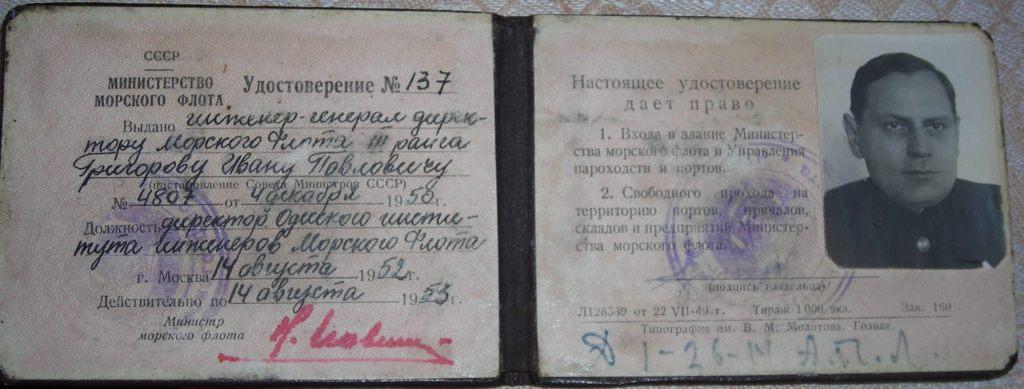 СССР
МИНИСТЕРСТВО
МОРСКОГО ФЛОТА
Удостоверение № 137
Выдано инженер-генерал дирек-
тору морского Флота III ранга
Григорову Ивану Павловичу
(постановление Совета Министров СССР)
№ 4807 от 4 декабря 1950 г.
Должность директор Одесского инсти-
тута инженеров Морского Флота
г. Москва 14 августа 1952 г.
Действительно по 14 августа 1953 г.
Министр
морского флота
Настоящее удостоверение
дает право
1. Входа в здание Министер-
ства морского флота и Управления
пароходств и портов.
2. Свободного прохода на
территорию портов, причалов,
складов и предприятий Министер-
ства морского флота.
(подпись владельца)
Л128539 от 22 VII-49 г. Тираж 1000 экз. Зак. 160
Типография им. В. М. Молотова. Гознак.
Д 1-26-IV А.П.Л.